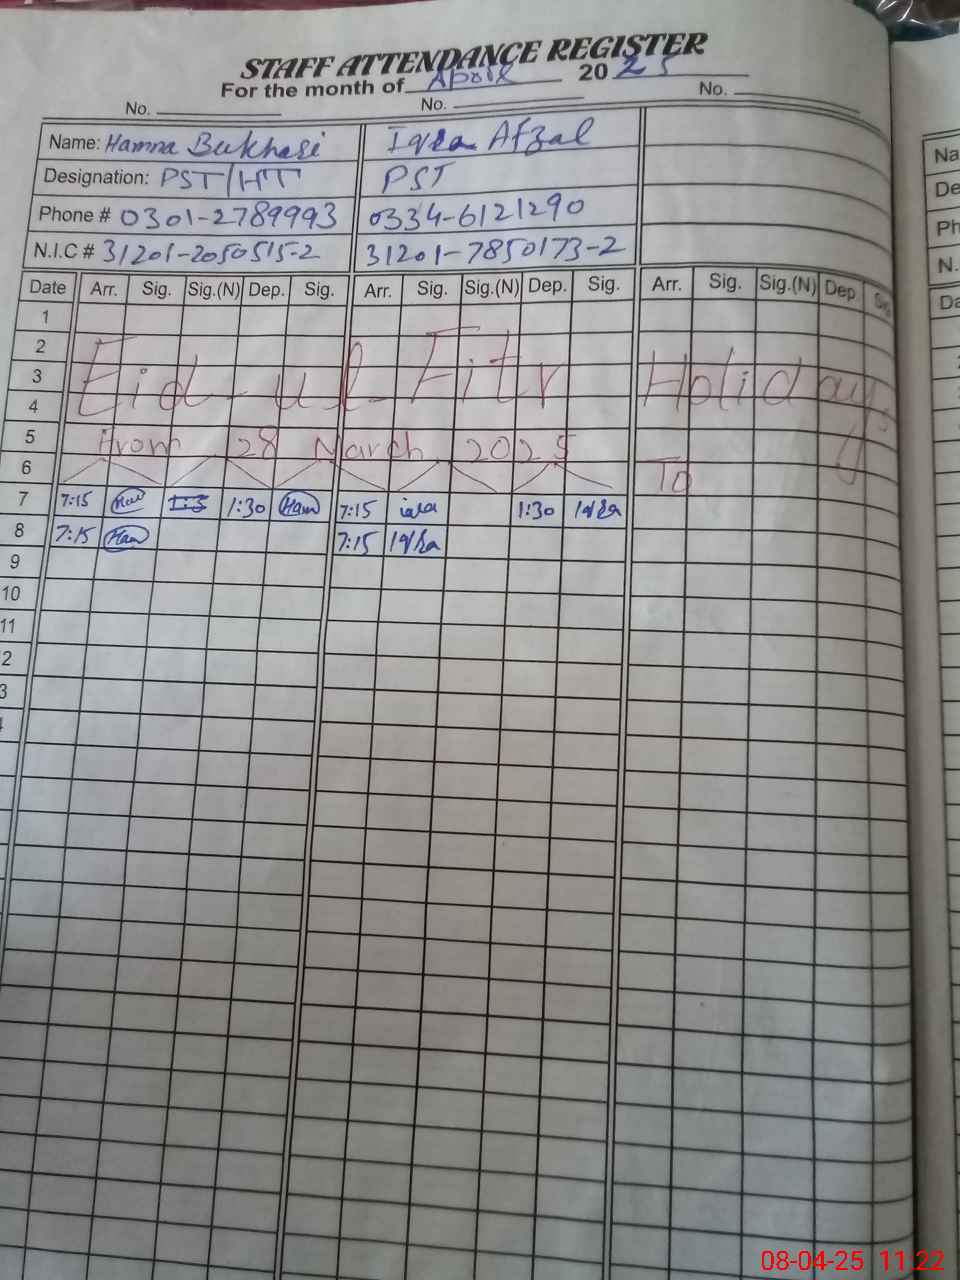 STAFF ATTENDANCE REGISTER
For the month of April 2025
No. No. No.
Name: Hamna Bukhari Iqra Afzal
Designation: PST/HT PST
Phone # 0301-2789993 0334-6121290
N.I.C # 31201-2050515-2 31201-7850173-2
Date Arr. Sig. Sig.(N) Dep. Sig. Arr. Sig. Sig.(N) Dep. Sig. Arr. Sig. Sig.(N) Dep. Sig.
1
2
3 Eid-ul-Fitr Holidays
4
5 From 28 March 2025
6 To
7 7:15 1:30 Ham 7:15 iqra 1:30 Iqra
8 7:15 Ham 7:15 Iqra
9
10
11
2
3
Na
De
Ph
N.
Da
08-04-25 11:22